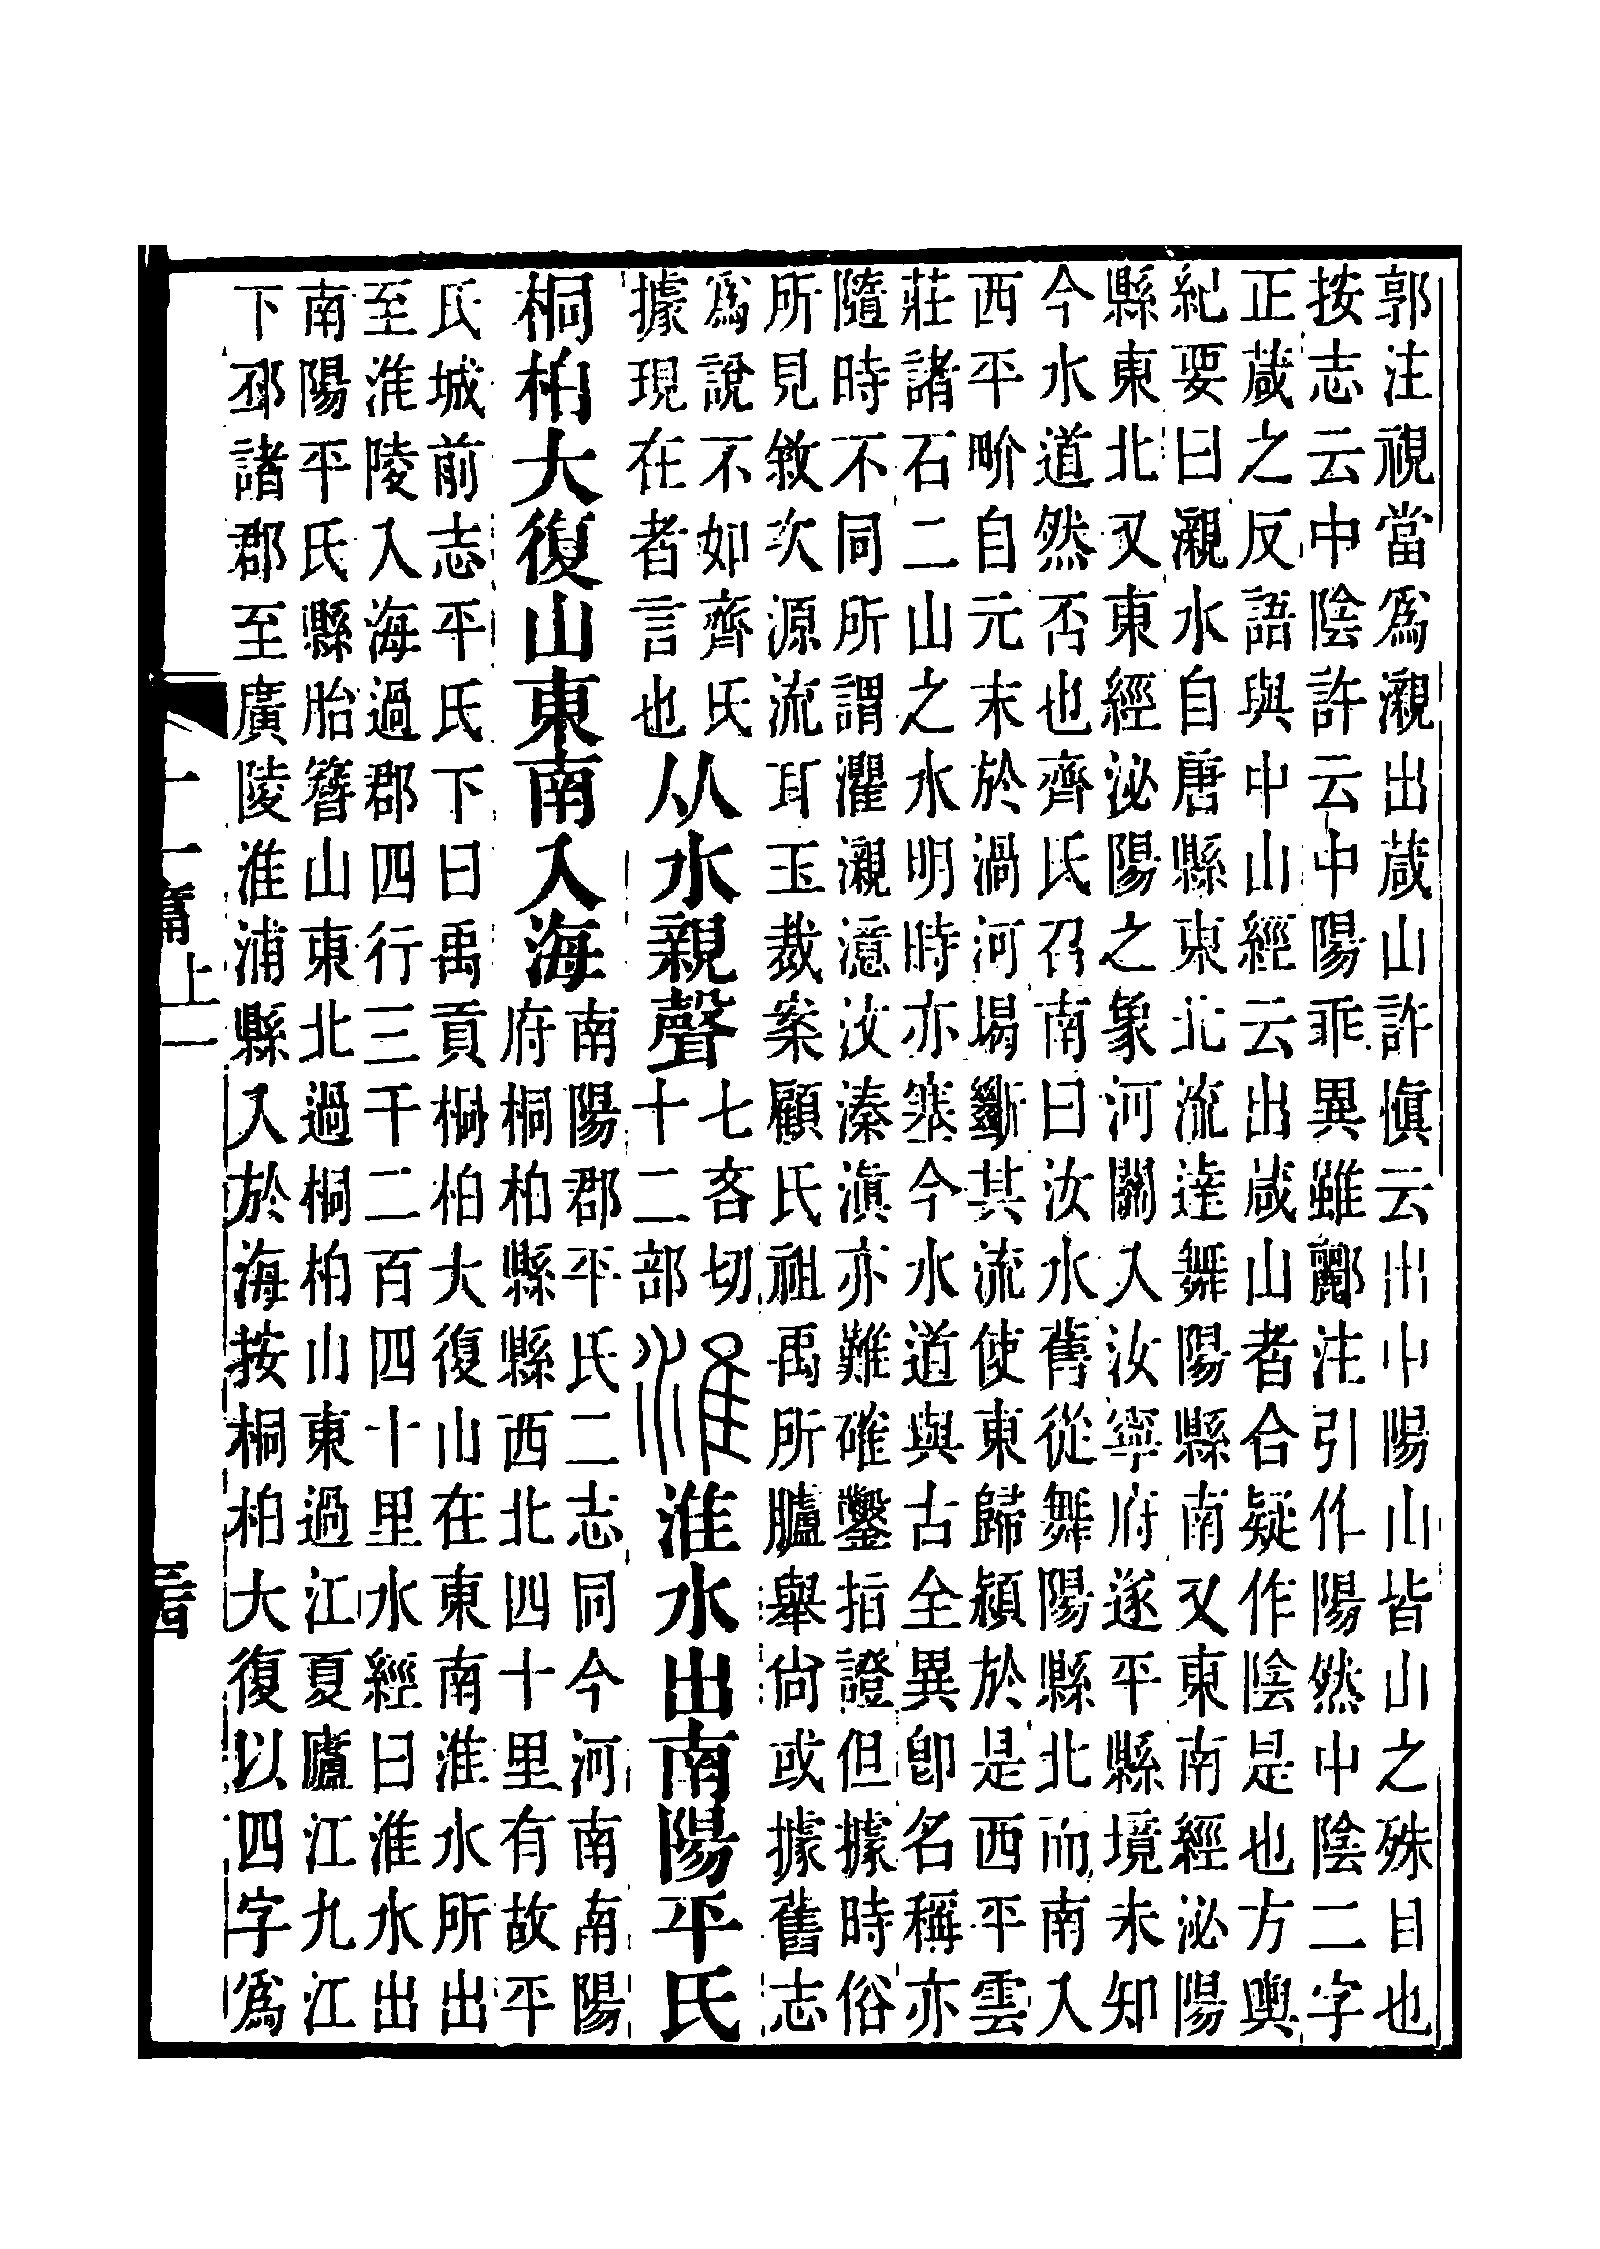 郭注視當爲瀙出葴山許慎云出中陽山皆山之殊目也
按志云中陰許云中陽乖異雖酈注引作陽然中陰二字
正葴之反語與中山經云出咸山者合疑作陰是也方輿
紀要曰瀙水自唐縣東北流逹舞陽縣南又東南經泌陽
縣東北又東經泌陽之象河關入汝寧府遂平縣境未知
今水道然否也齊氏召南曰汝水舊從舞陽縣北而南入
西平畍自元末於渦河堨斷其流使東歸潁於是西平雲
莊諸石二山之水明時亦塞今水道與古全異卽名稱亦
隨時不同所謂灈瀙澺汝溱滇亦難確鑿指證但據時俗
所見敘次源流耳玉裁案顧氏祖禹所臚舉尙或據舊志
爲說不如齊氏
據現在者言也
从水親聲
七吝切
十二部
淮
淮水出南陽平氏
桐柏大復山東南入海
南陽郡平氏二志同今河南南陽
府桐柏縣縣西北四十里有故平
氏城前志平氏下曰禹貢桐柏大復山在東南淮水所出
至淮陵入海過郡四行三千二百四十里水經曰淮水出
南陽平氏縣胎簪山東北過桐柏山東過江夏廬江九江
下邳諸郡至廣陵淮浦縣入於海按桐柏大復以四字爲
十一篇上一